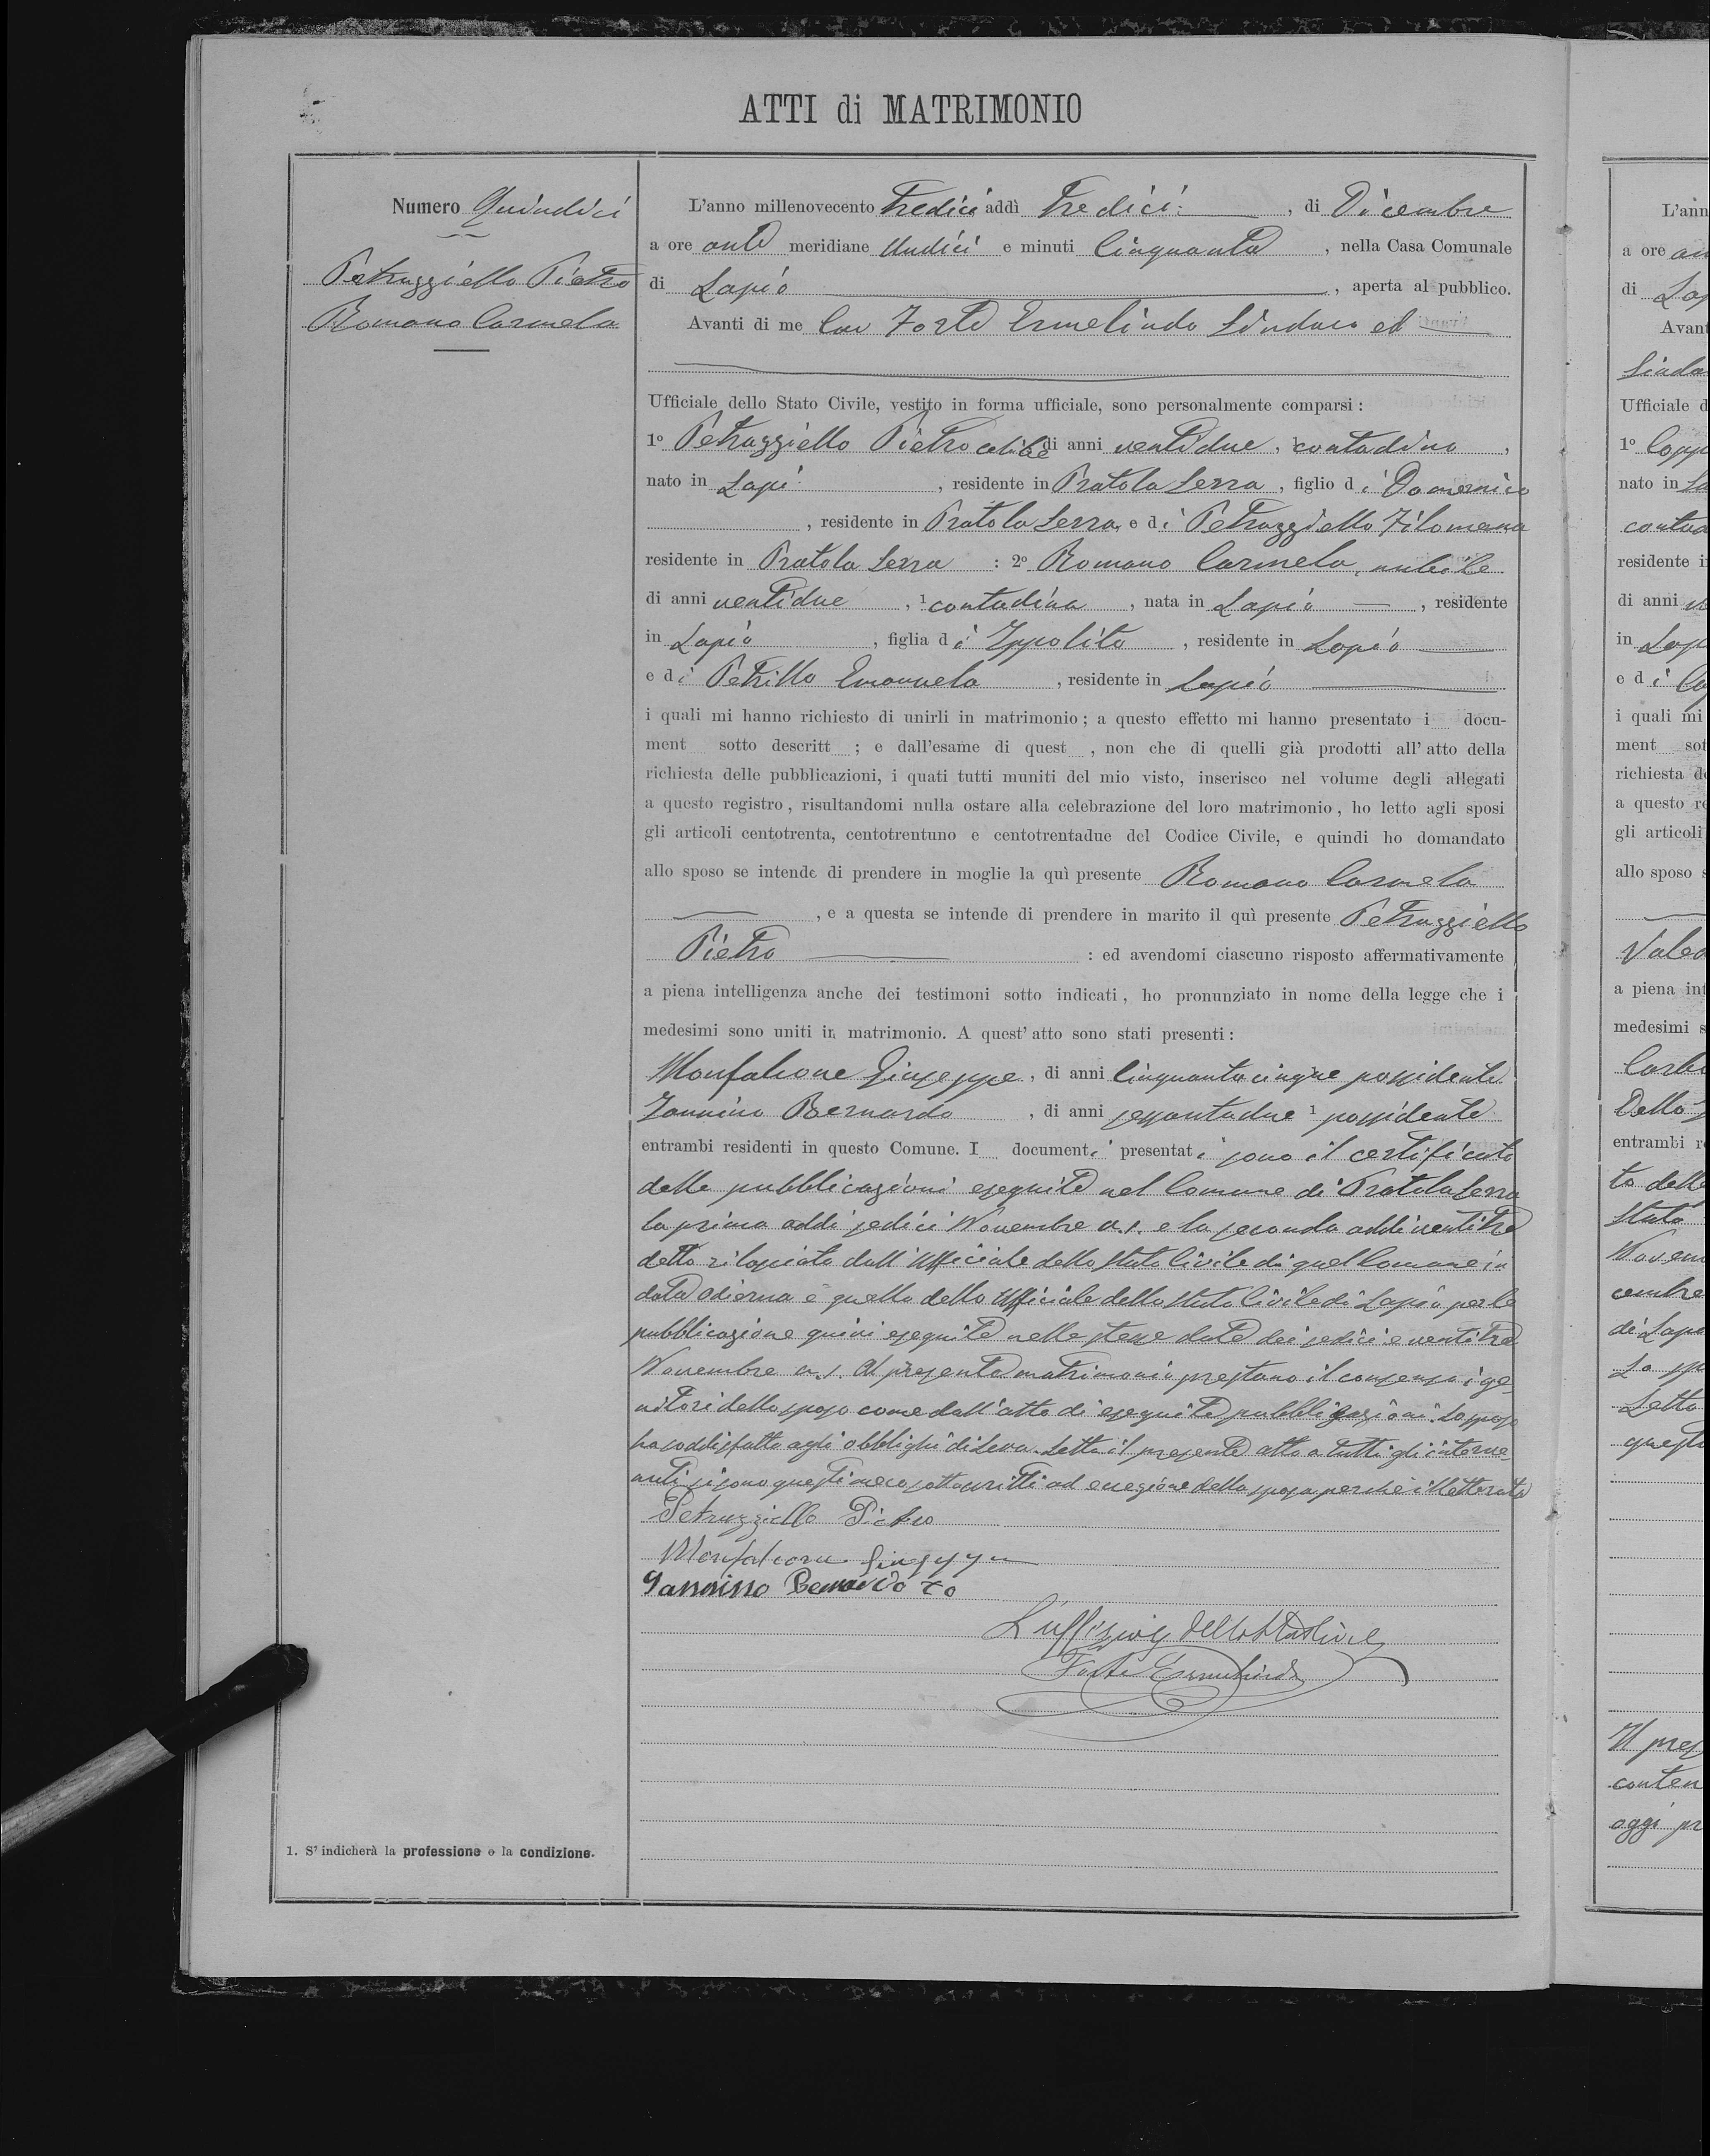 ATTI di MATRIMONIO
Numero Quindici
Petruzziello Pietro
Romano Carmela
L'anno millenovecento Tredici addì Tredici, di Dicembre
a ore ante meridiane Undici e minuti Cinquanta, nella Casa Comunale
di Lapio, aperta al pubblico.
Avanti di me Cav Forte Ermelindo Sindaco ed
Ufficiale dello Stato Civile, vestito in forma ufficiale, sono personalmente comparsi:
1º Petruzziello Pietro celibe di anni ventidue, 1 contadino,
nato in Lapio, residente in Pratola Serra, figlio di Domenico
, residente in Pratola Serra, e di Petruzziello Filomena
residente in Pratola Serra : 2º Romano Carmela, nubile
di anni ventidue, 1 contadina, nata in Lapio, residente
in Lapio, figlia di Ippolito, residente in Lapio
e di Petrillo Emanuela, residente in Lapio
i quali mi hanno richiesto di unirli in matrimonio; a questo effetto mi hanno presentato i docu-
ment sotto descritt ; e dall'esame di quest , non che di quelli già prodotti all'atto della
richiesta delle pubblicazioni, i quati tutti muniti del mio visto, inserisco nel volume degli allegati
a questo registro, risultandomi nulla ostare alla celebrazione del loro matrimonio, ho letto agli sposi
gli articoli centotrenta, centotrentuno e centotrentadue del Codice Civile, e quindi ho domandato
allo sposo se intende di prendere in moglie la quì presente Romano Carmela
, e a questa se intende di prendere in marito il quì presente Petruzziello
Pietro : ed avendomi ciascuno risposto affermativamente
a piena intelligenza anche dei testimoni sotto indicati, ho pronunziato in nome della legge che i
medesimi sono uniti in matrimonio. A quest'atto sono stati presenti:
Monfalcone Giuseppe, di anni cinquantacinque possidente
Iannino Bernardo, di anni sessantadue 1 possidente
entrambi residenti in questo Comune. I documenti presentati sono il certificato
delle pubblicazioni eseguite nel Comune di Pratola Serra
la prima addi sedici Novembre a.s. e la seconda addi ventitre
detto rilasciato dall'Ufficiale dello Stato Civile di quel Comune in
data odierna e quello dello Ufficiale dello Stato Civile di Lapio per le
pubblicazione quivi eseguite nelle stesse date dei sedici e ventitre
Novembre a.s. Al presente matrimonio prestano il consenso i ge-
nitori dello sposo come dall'atto di eseguite pubblicazioni. Lo sposo
ha soddisfatto agli obblighi di Leva. Letto il presente atto a tutti gli interve-
nuti si sono questi meco sottoscritti ad eccezione della sposa perché illetterata
Petruzziello Pietro
Monfalcone Giuseppe
Iannino Bernardo to
L'uffiziale dello Stato Civile
Forte Ermelindo
1. S'indicherà la professione o la condizione.
L'ann
a ore an
di Lap
Avant
Sinda
Ufficiale d
1º Copp
nato in La
conta
residente i
di anni
in Lap
e di
i quali mi
ment sot
richiesta d
a questo re
gli articoli
allo sposo s
a piena int
medesimi s
Dello
entrambi r
to delle
Stato
Novem
cembre
di Lapi
Lo sp
Letto
questi
Il pres
conten
oggi pr